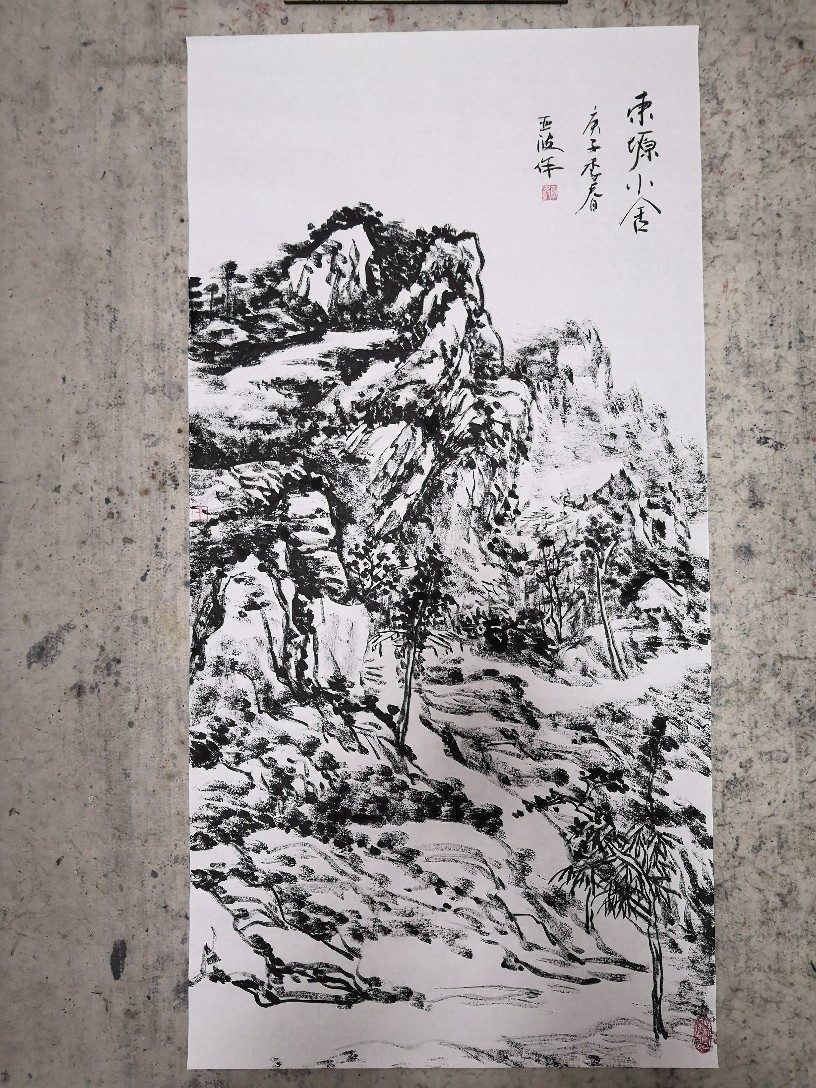 東塬小舍
庚子季春
亚波作